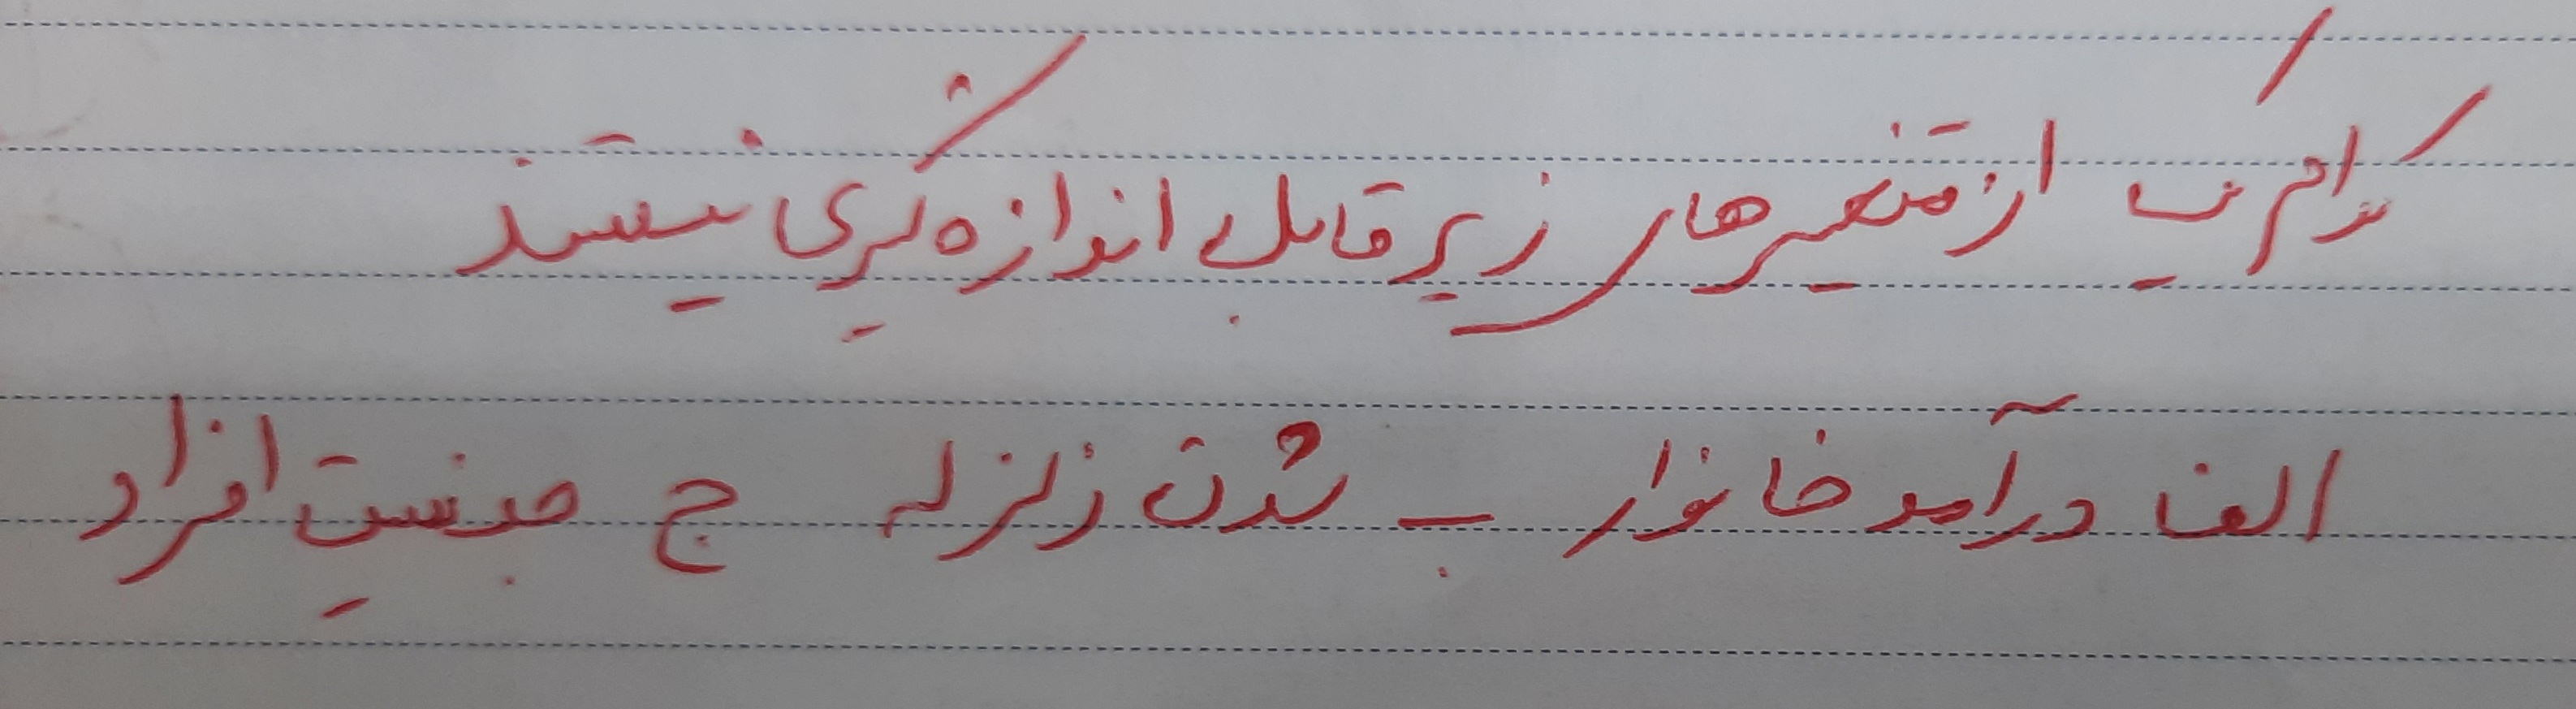 کدام یک از متغیرهای زیر قابل اندازه گیری نیستند
الف درآمد خانوار ب شدت زلزله ج جنسیت افراد